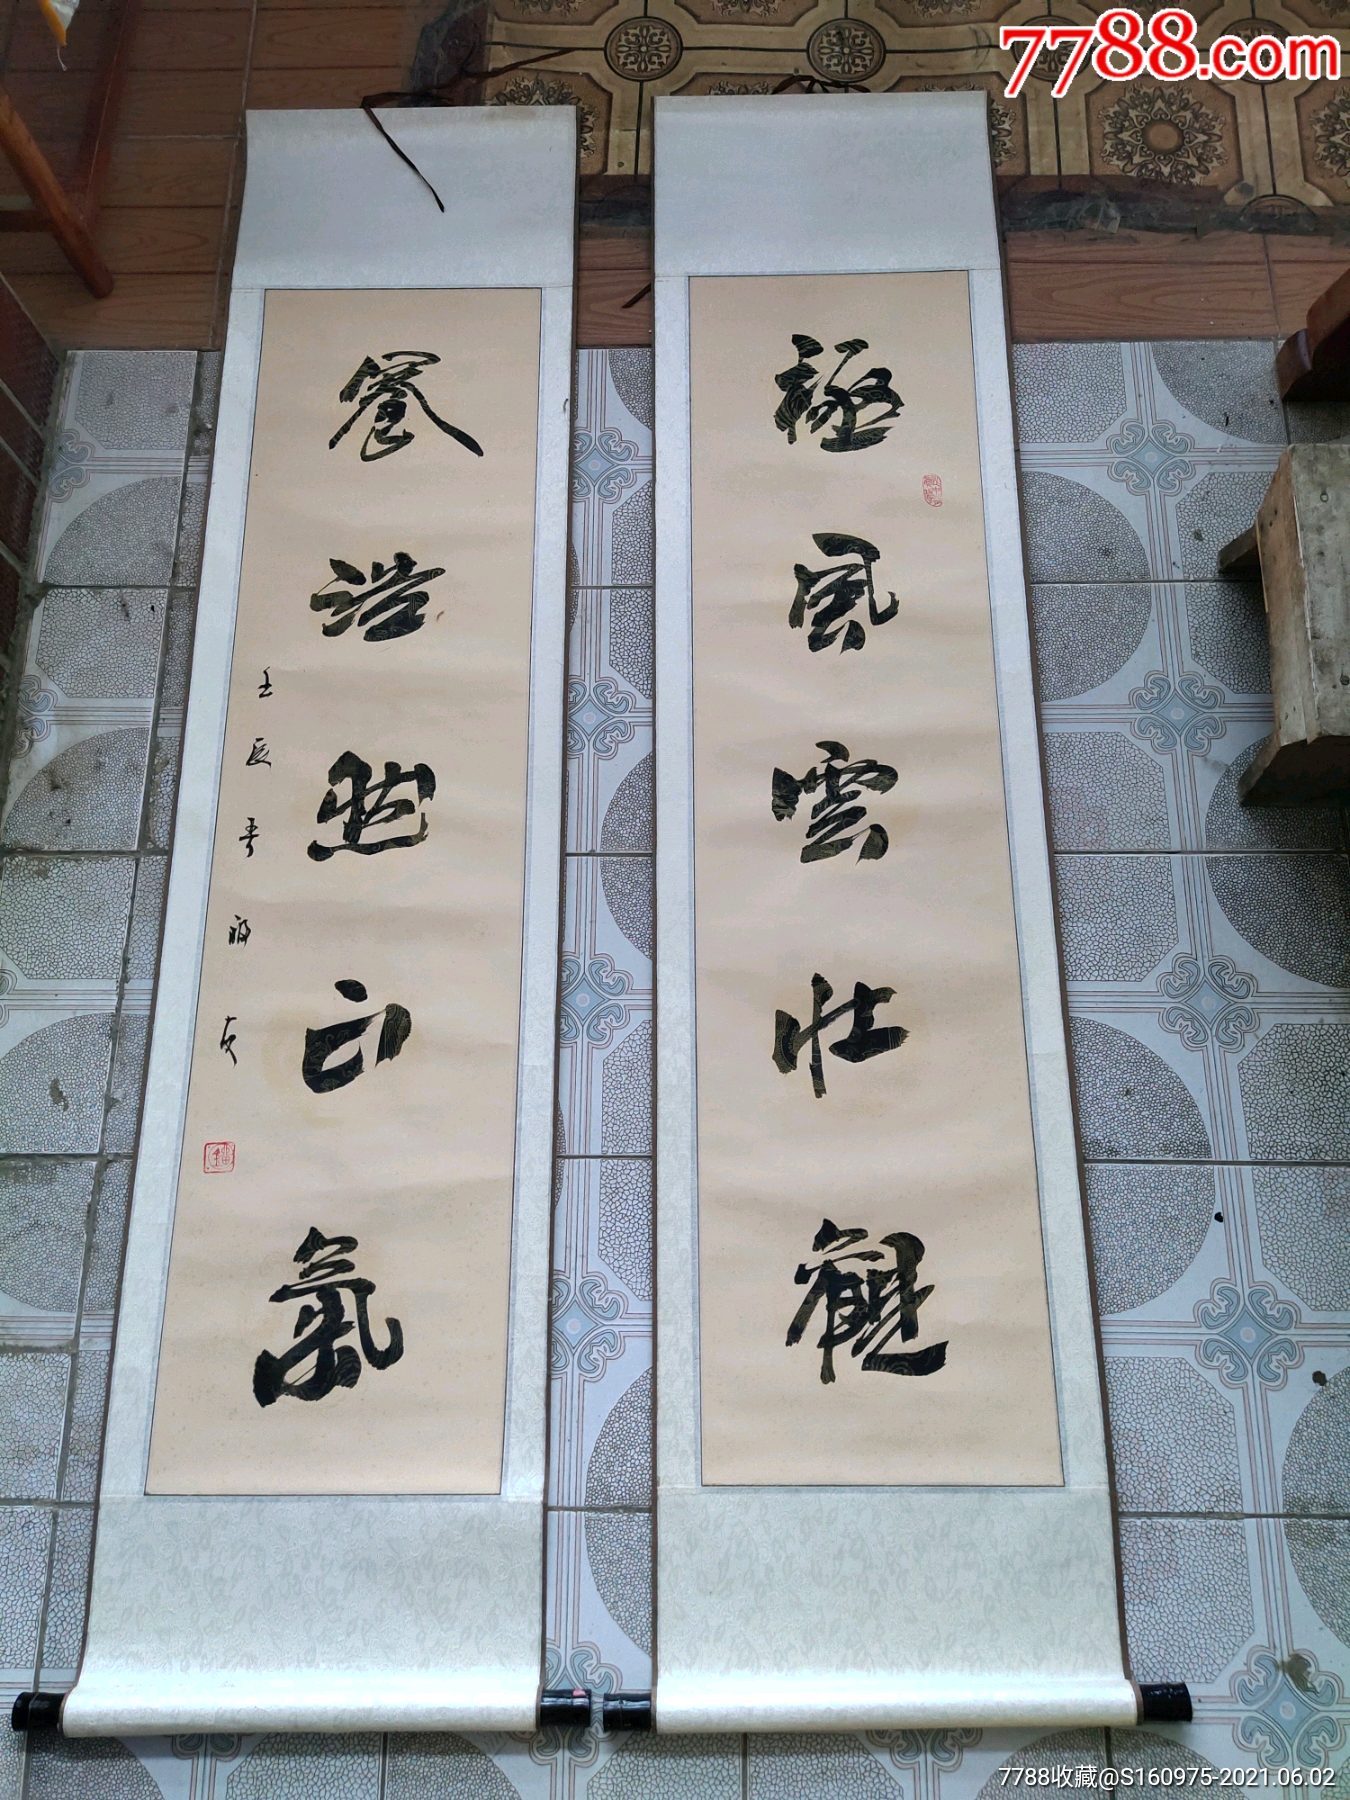 7788.com
極風雲壯觀
養浩然正氣
壬辰年
7788收藏@S160975-2021.06.02